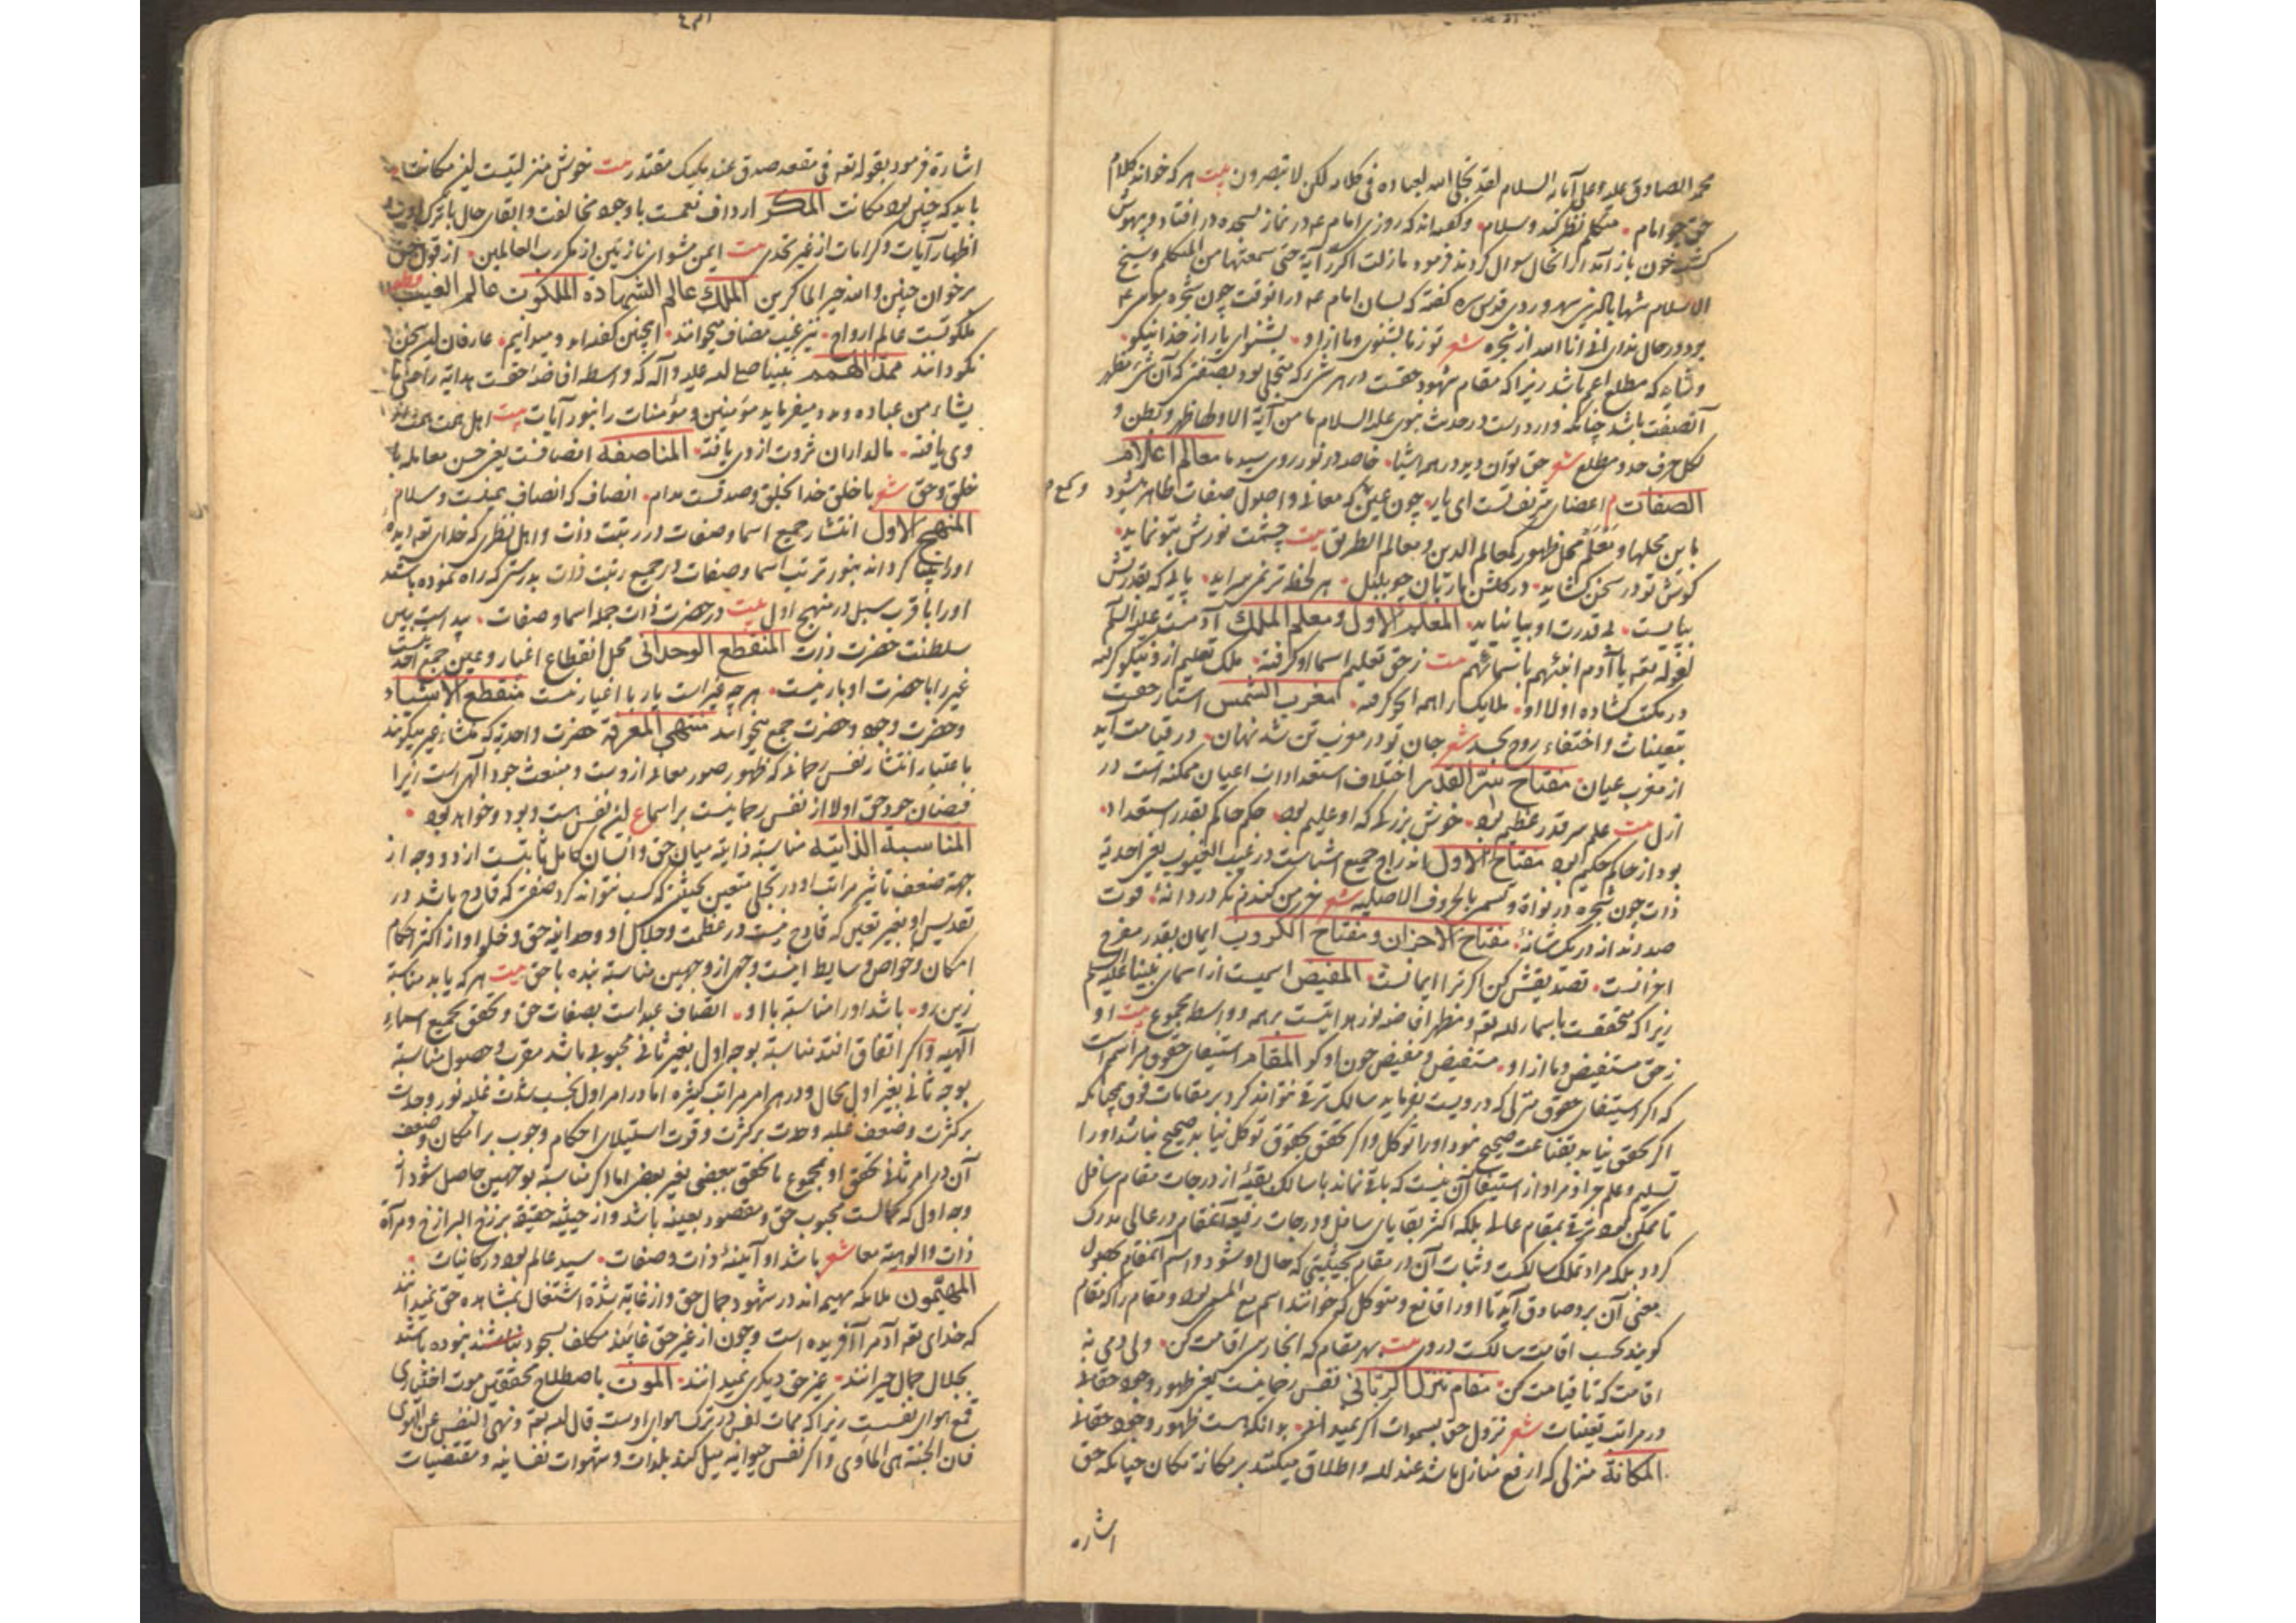 محمد الصادق علیه وعلی آبائه السلام لقد تجلی الله لعباده فی کلامه لکن لا تبصرون بیت هرکه خواند کلام
حق چو امام متکلم نظر کند وسلام وگفته‌اند که روزی امام ع در نماز بسجده در افتاد و بیهوش
گشت چون باز آمد از آنحال سوال کردند فرمود ما زلت اکرر آیة حتی سمعتها من المتکلم وشیخ
الاسلام شهاب الدین سهروردی قدس سره گفته که لسان امام ع در آنوقت چون شجره موسی ع
بود در حال ندای انی انا الله از شجره شعر تو ز ما بشنوی وما از او بشنو ای یار از خدا نیکو
وشاید که مطلع اعم باشد زیرا که مقام شهود حقست در هر شیء که متجلی بود بصفتی که آن شیء مظهر
آنصفت باشد چنانکه وارد است در حدیث نبوی علیه السلام ما من آیة الا ولها ظهر وبطن و
لکل حرف حد ومطلع شعر حق توان دید در همه اشیا خاصه در نور روی سید ما معالم اعلام
الصفات اعضای شریف تست ای یار چون عین که معانی واصول صفات ظاهر میشود
باین محلها ومَعْلَم محل ظهور کمعالم الدین ومعالم الطریق بیت چشمت نورش بتو نماید
گوش تو در سخن گشاید در گلشن ما زبان چو بلبل هر لحظه ترنمی سراید پایی که بقدرتش
بپایست بی قدرت او بپا نیاید المعلم الاول ومعلم الملک آدمست علیه السلام
لقوله تعه یا آدم انبئهم باسمائهم بیت ز حق تعلیم اسما او گرفته ملک تعلیم ازو نیکو گرفته
در مکتب گشاده اولا او ملایک را همه ابجد گرفته مغرب الشمس استتار حقست
بتعینات واختفاء روح بجسد شعر جان تو در مغرب تن شد نهان در قیامت آید
از مغرب عیان مفتاح سرّ القدر اختلاف استعدادات اعیان ممکنه است در
ازل بیت علم سر قدر عظیم بود خوش بزرگی که او علیم بود حکم حاکم بقدر استعداد
بود از حاکم حکیم بود مفتاح الاول اندراج جمیع اشیاست در غیب الغیوب یعنی احدیة
ذات چون شجره در نواة وتسمی بالحروف الاصلیه شعر خرمن گندم نگر در دانهٔ قوت
صد دنداز در یک شانهٔ مفتاح الاحزان ومفتاح الکروب ایمان بقدر مفرح
احزانست تصدیقش کن اگر ترا ایمانست المفیض اسمیست از اسمای نبینا علیه السلام
زیرا که متحققست باسماء الله تعه ومظهر افاضه نور هدایتست بر همه و واسطه مجموع بیت او
ز حق مستفیض وما از او مستفیض ومفیض چون او کو المقام استیفای حقوق مراسم است
که اگر استیفای حقوق منزلی که در ویست نفرماید سالک ترقی نتواند کرد بر مقامات فوق چنانکه
اگر تحقق نیابد بقناعت صحیح نبود او را توکل واگر تحقق بحقوق توکل نیابد صحیح نباشد او را
تسلیم وهلم جرا ومراد از استیفا آن نیست که باقی نماند با سالک بقیهٔ از درجات مقام سافل
تا ممکن بود ترقی بمقام عالی بلکه اکثر بقایای سافل ودرجات رفیعهٔ آنمقام در عالی مدرک
گردد بلکه مراد تملک سالکست وثبات آن در مقام بحیثیتی که حال او شود واسم آنمقام بحصول
معنی آن برو صادق آید تا او را قانع ومتوکل که خوانند اسم مع المسمی بود ومقام را که مقام
گویند بحسب اقامت سالکست درو بیت بهر مقام که آنجا رسی اقامت کن ولی دمی نه
اقامت که تا قیامت کن مقام تنزل الربانی نفس رحمانیست یعنی ظهور وجود حقانی
در مراتب تعینات شعر نزول حق بسموات اگر نمیدانی بدانکه هست ظهور وجود حقانی
المکانة منزلی که ارفع منازل باشد عند الله واطلاق میکنند بر مکانة مکان چنانکه حق
اشاره
اشارة فرمود بقوله تعه فی مقعد صدق عند ملیک مقتدر بیت خوش منزلیست این مکانت
باید که چنین بود مکانت المکر ارداف نعمست با وجود مخالفت وابقای حال با ترک ادب
اظهار آیات وکرامات از غیر تحدی بیت ایمن مشو ای نازنین از مکر رب العالمین از قول حق
برخوان چنین والله خیر الماکرین الملک عالم الشهادة الملکوت عالم الغیب
ملکوتست عالم ارواح نیز غیب مضاف میخوانند اینچنین گفته‌اند ومیدانیم عارفان این سخن
نکو دانند ممد الهمم نبینا صلی الله علیه وآله که واسطه افاضه حقست هدایة را حتی
یشاء من عباده ومدد میفرماید مؤمنین ومؤمنات را بنور آیات بیت اهل همت همت
وی یافته مالداران ثروت از وی یافته المناصفة انصافست یعنی حسن معامله با
خلق وحق شعر با خلق خدا بخلق وصدقست مدام انصاف که انصاف همینست وسلام
المنهج الاول انتشار جمیع اسما وصفات در رتبت ذات واهل نظری که خدای تعه دیدهٔ
او را بینا گرداند بنور ترتب اسما وصفات در جمیع رتبت ذات بدرستی که راه نموده باشد
او را باقرب سبل در منهج اول بیت در حضرت ذات جمله اسما وصفات پیداست ببین
سلطنت حضرت ذات المنقطع الوحدانی محل انقطاع اغیار وعین جمع احدیست
غیر را با حضرت او بار نیست هرچه غیر است یار با اغیار نیست منقطع الاشیاء
وحضرت وجود وحضرت جمع میخوانند منتهی المعرفة حضرت واحدیة که منشاء غیر میگویند
باعتبار انتشار نفس رحمانی که ظهور صور معانی ازوست ومنبعث جود الهی است زیرا
فیضان جود حق اولا از نفس رحمانیست بر اسماع این نفس هست وبود وخواهد بود
المناسبة الذاتیة مناسبة ذاتیه میان حق وانسان کامل ثابتست از دو وجه از
جهة ضعف تاثیر مراتب او در تجلی متعین بحیثی که کسب نتواند کرد صفتی که قادح باشد در
تقدیس او بغیر تعین که قادح نیست در عظمت وجلال او ووحدانیة حق وخلو او از اکثر احکام
امکان وخواص وسایط اینست وجهی از وجهین مناسبة بنده با حق بیت هرکه یابد مناسبة
زین رو باشد او را مناسبة با او اتصاف عبد است بصفات حق وتحقق بجمیع اسماء
الهیه واگر اتفاق افتد مناسبة بوجه اول بغیر ثانی محبوبی باشد مقرب وحصول مناسبة
بوجه ثانی بغیر اول محال ودر هر امر مراتب کثیره اما در امر اول بحسب شدت غلبه نور وحدت
برکثرت وضعف غلبه وحدت برکثرت وقوت استیلای احکام وجوب بر امکان وضعف
آن در امر ثانی تحقق او بمجموع یا تحقق ببعضی بغیر بعض اما اگر مناسبة بوجهین حاصل شود از
وجه اول که کمالست محبوب حق ومقصود بعینه باشد واز حیثیة حقیقة برزخ البرازخ ومرآة
ذات والوهیة معا شعر باشد او آیینهٔ ذات وصفات سید عالم بود در کائنات
المهیّمون ملائکه مهیمه‌اند در شهود جمال حق واز غایة شدة اشتغال بمشاهده حق نمیدانند
که خدای تعه آدم را آفریده است وچون از غیر حق غایبند مکلف بسجود نبوده باشند
بجلال جمال حیرانند غیر حق دیگری نمیدانند الموت باصطلاح محققین موت اختیاری
قمع هوای نفسیست زیرا که ممات نفس در ترک هوای اوست قال الله تعه ونهی النفس عن الهوی
فان الجنة هی المأوی واگر نفس حیوانیه میل کند بلذات وشهوات نفسانیه ومقتضیات